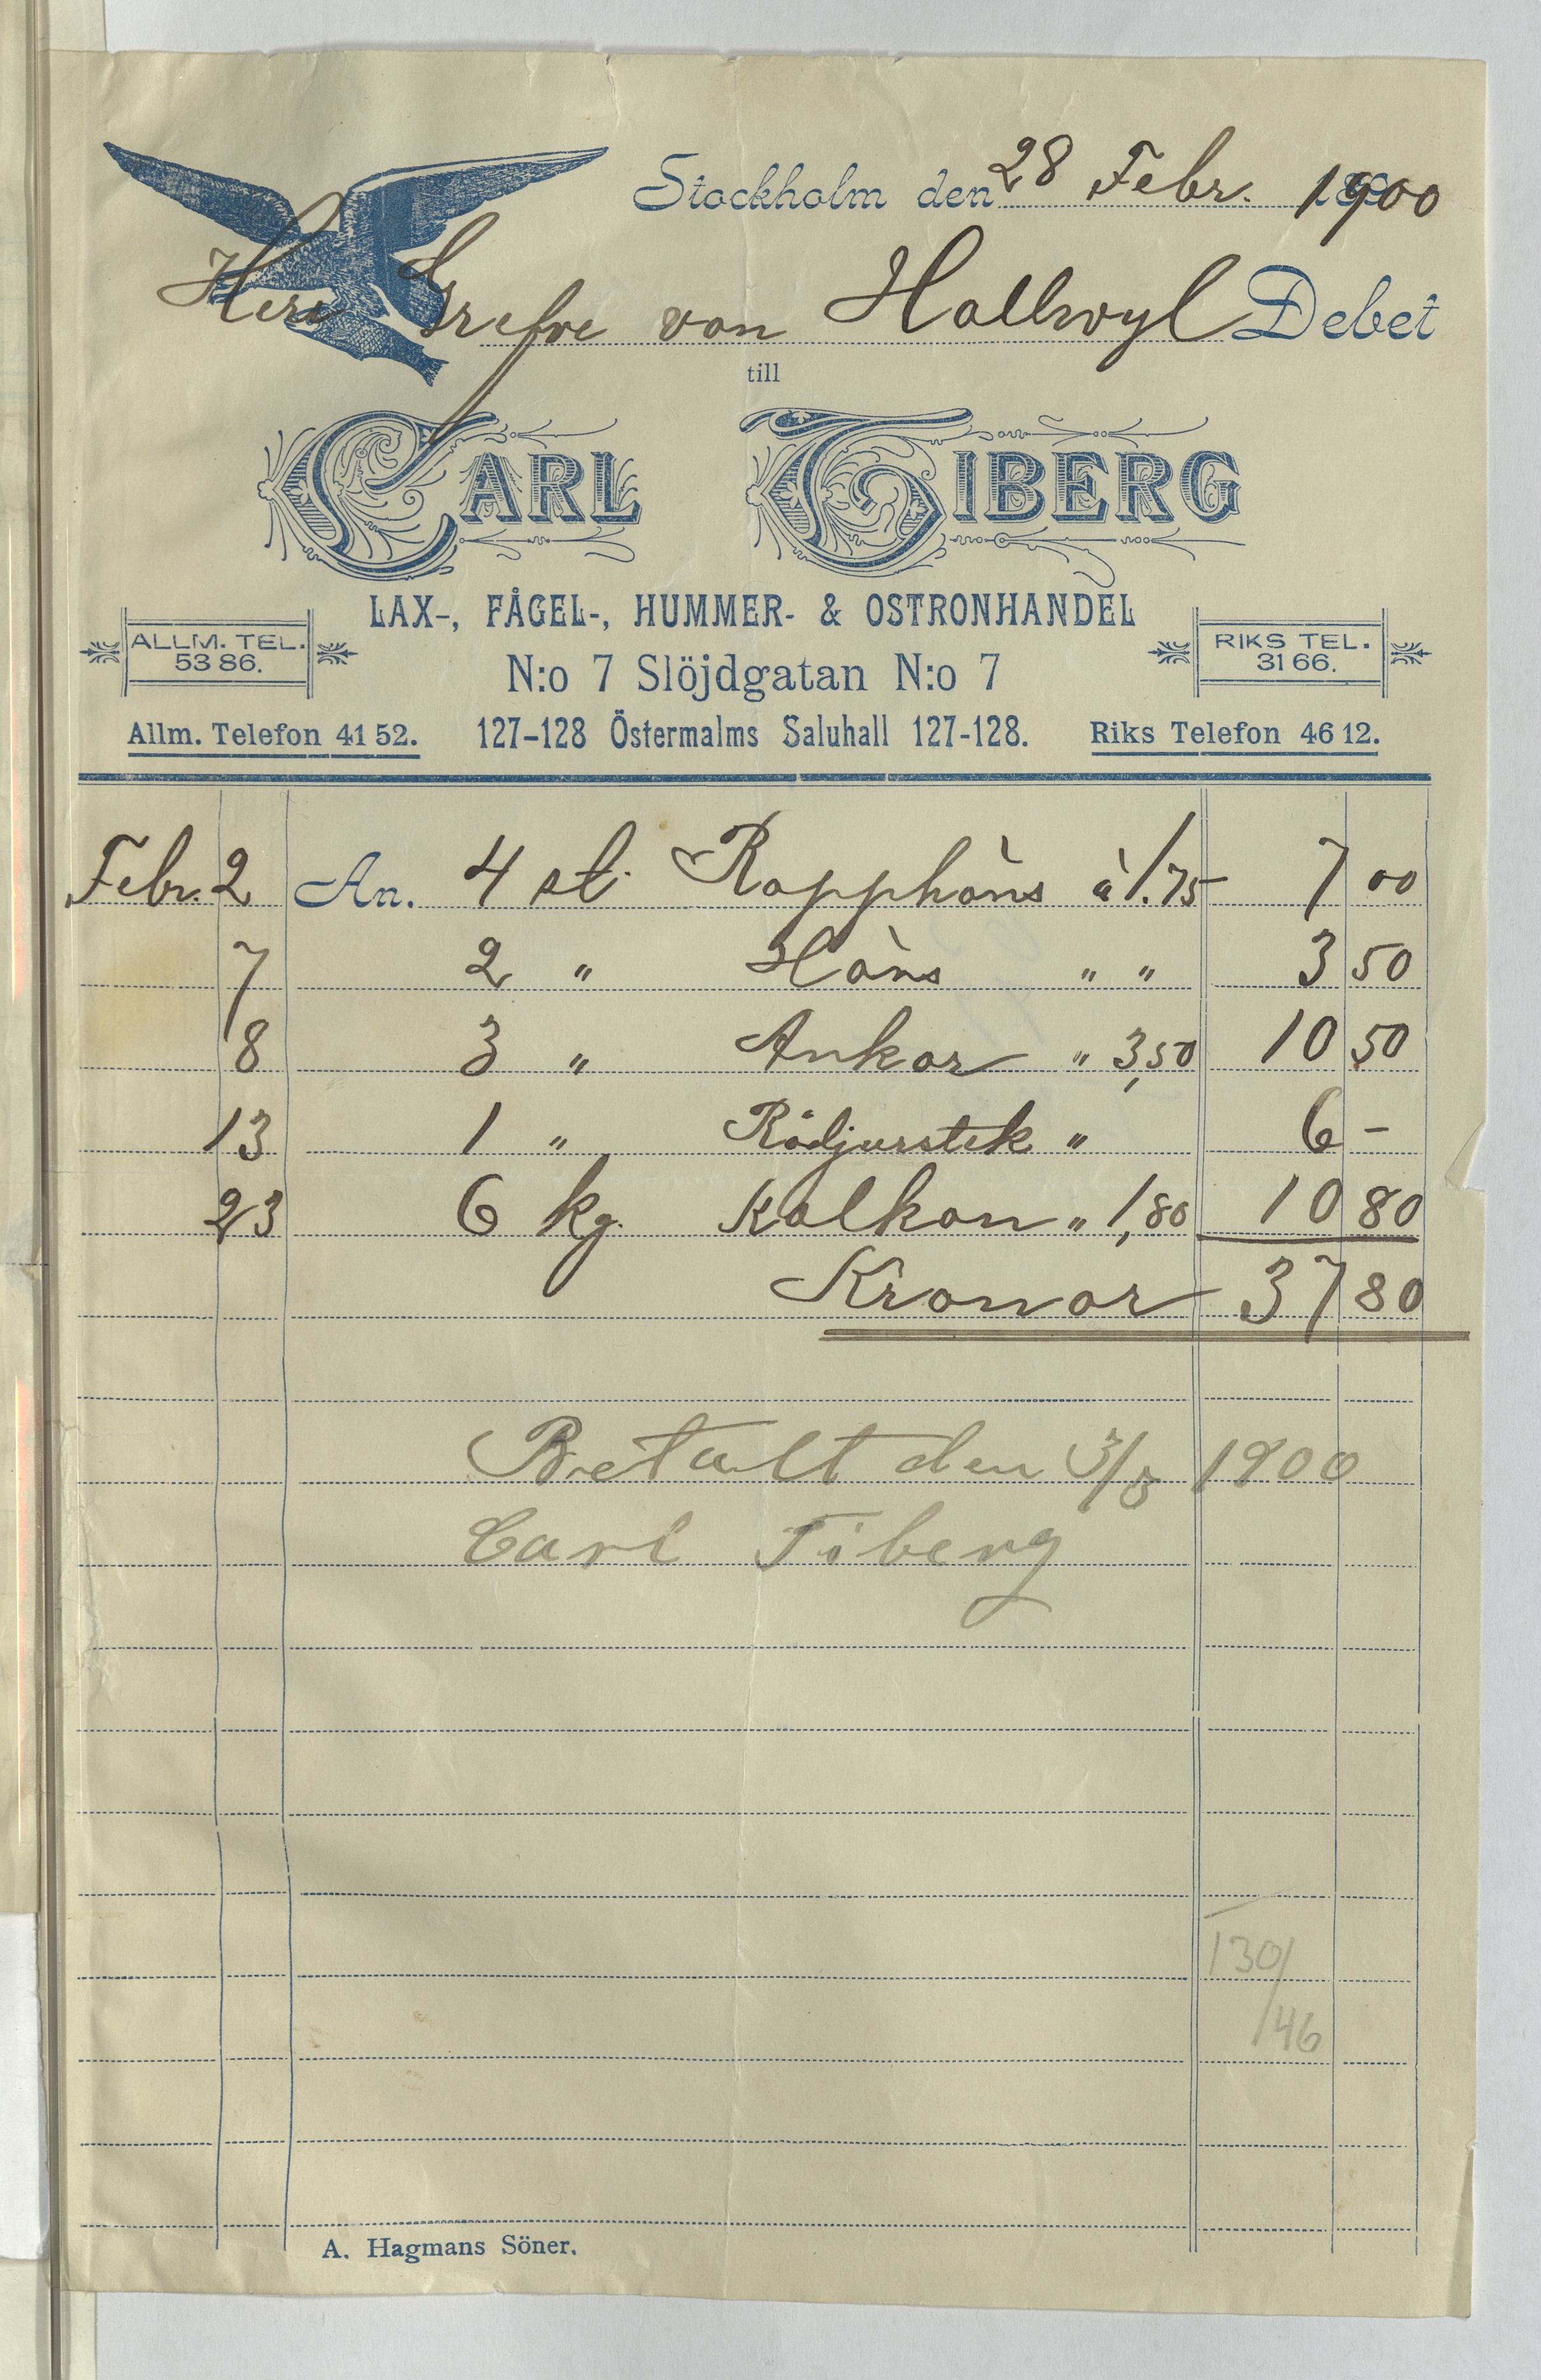 Stockholm den 28 Febr. 1900
Herr Grefve von Hallwyl Debet
till
CARL TIBERG
LAX-, FÅGEL-, HUMMER- & OSTRONHANDEL
ALLM. TEL. 53 86.
N:o 7 Slöjdgatan N:o 7
RIKS TEL. 31 66.
Allm. Telefon 41 52. 127-128 Östermalms Saluhall 127-128. Riks Telefon 46 12.
Febr. 2 An. 4 st. Rapphöns à 1.75 7 00
7 2 " Höns " " 3 50
8 3 " Ankor " 3,50 10 50
13 1 " Rådjurstek " 6 -
23 6 kg. Kalkon " 1,80 10 80
Kronor 37 80
Betalt den 3/3 1900
Carl Tiberg
130/
/46
A. Hagmans Söner.